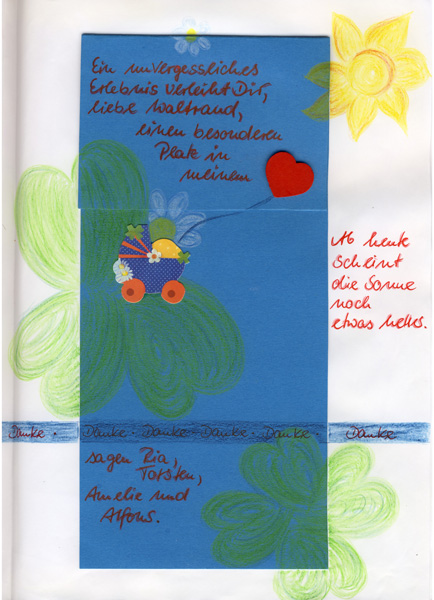 Ein unvergessliches
Erlebnis verleiht Dir,
liebe Waltraud,
einen besonderen
Platz in
meinem
Ab heute
scheint
die Sonne
noch
etwas heller.
Danke · Danke · Danke · Danke · Danke · Danke
sagen Ria,
Torsten,
Amelie und
Alfons.